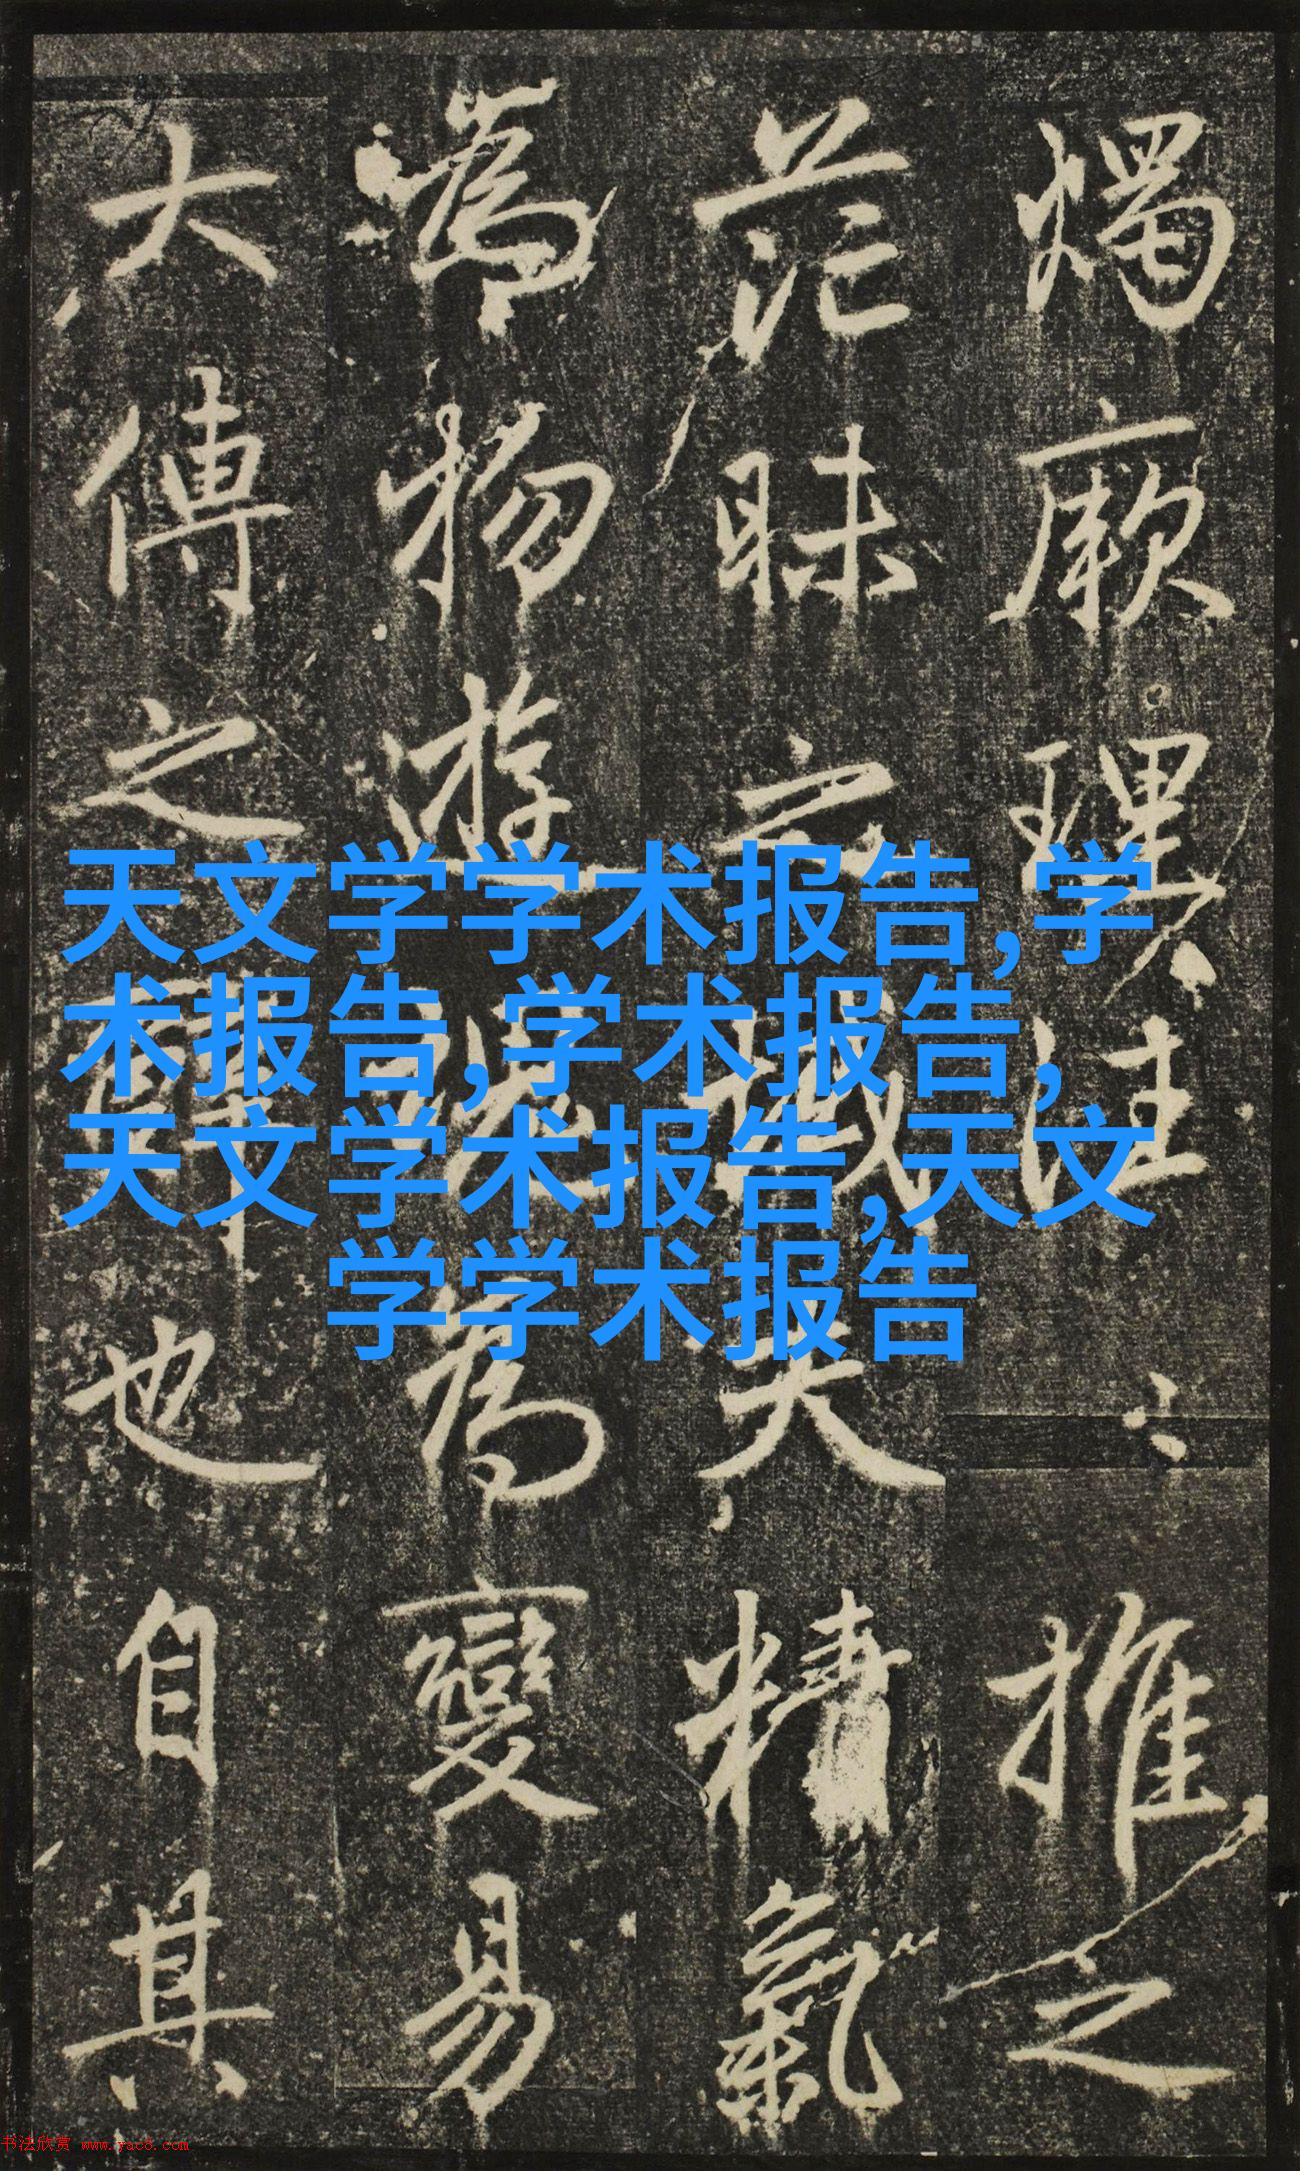 燭厥理往推之
茫昧夫精氣
為物遊魂為變易
大傳之辭也自其
天文学学术报告,学
术报告,学术报告,
天文学术报告,天文
学学术报告
书法欣赏 www.yac8.com